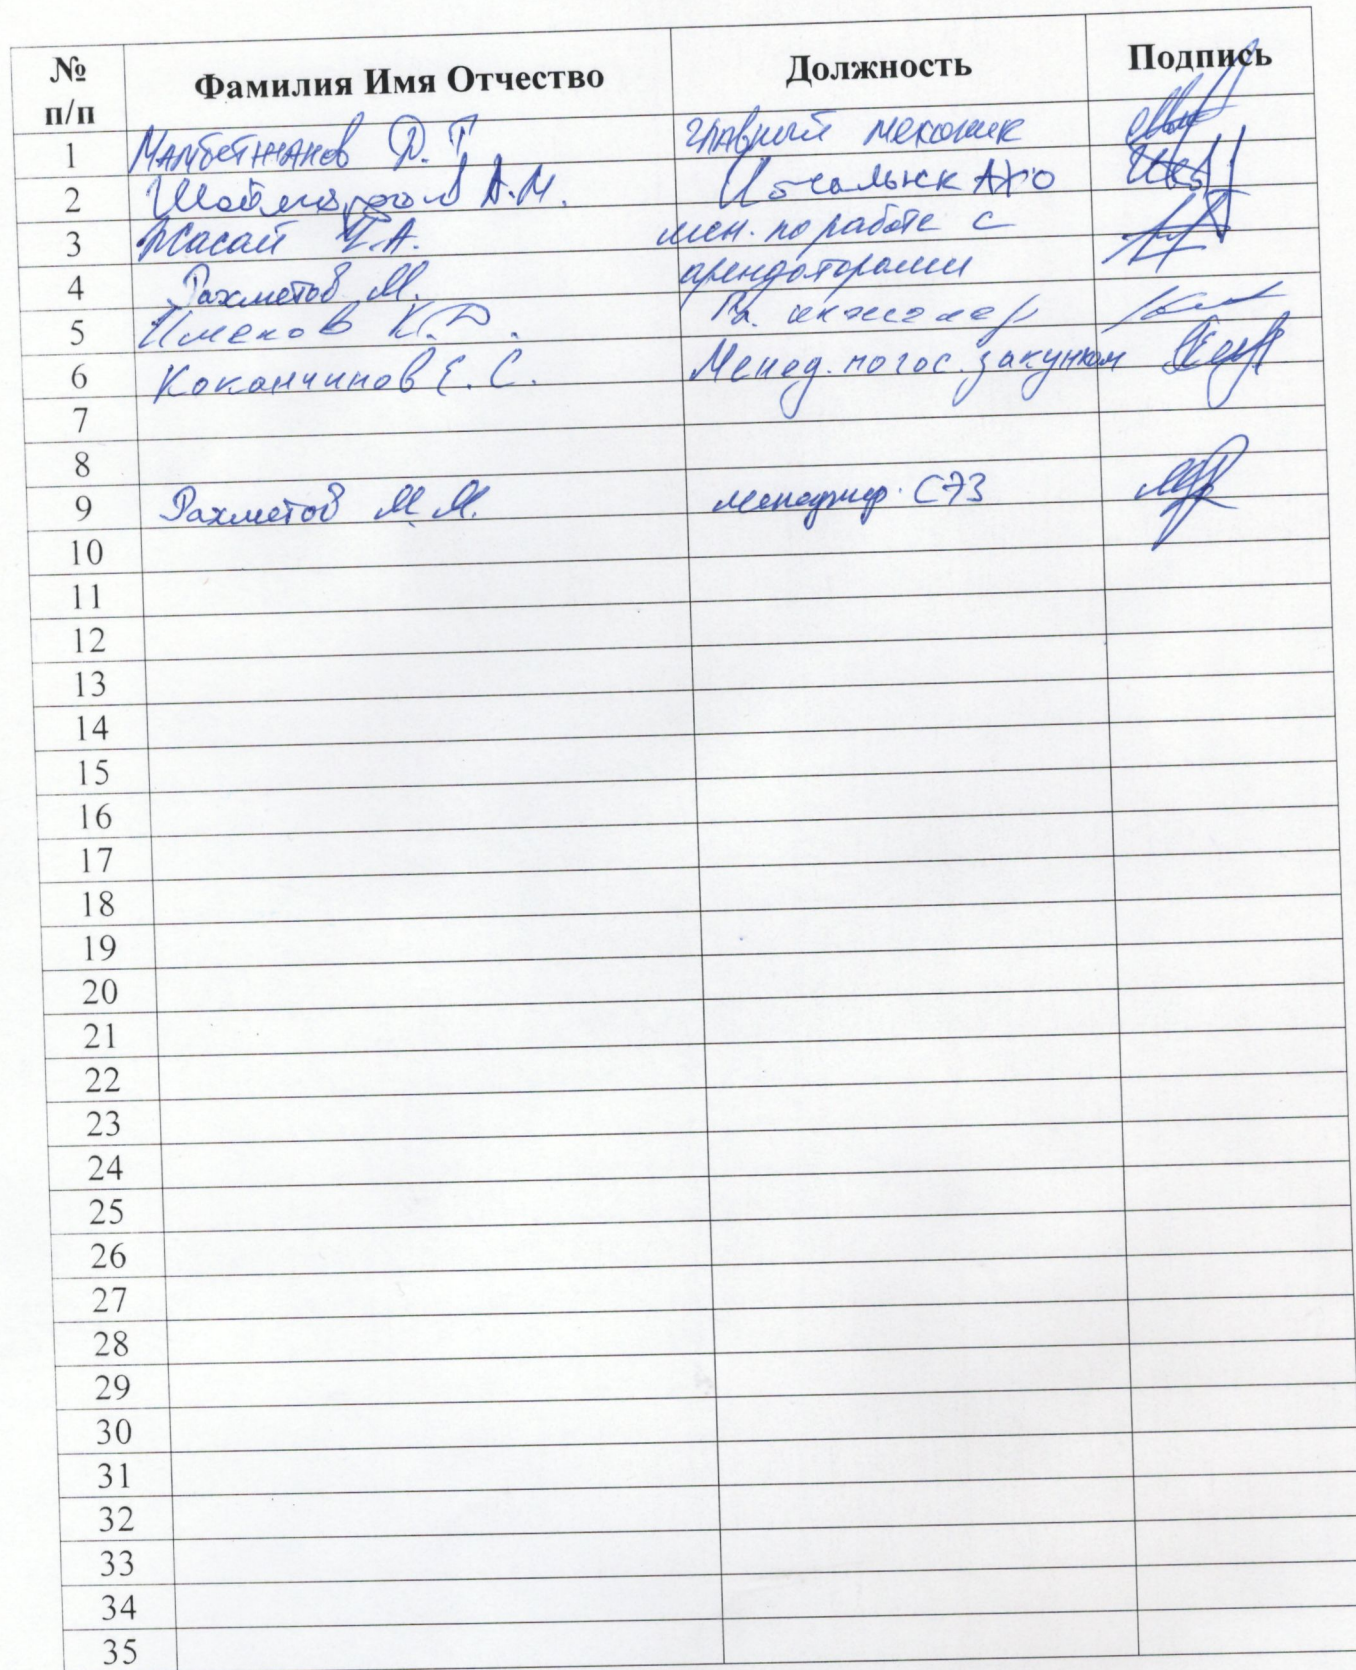 № п/п Фамилия Имя Отчество Должность Подпись
1 Мамбетжанов Д. Т главный механик
2 А.М. АХО
3 Жасай Т.А. мен. по работе с
4 Рахметов М. арендаторами
5 Именов К.Д. Гл. инженер
6 Коканчинов Е. С. Менед. по гос. закупкам
7
8
9 Рахметов М. М. менеджер СЭЗ
10
11
12
13
14
15
16
17
18
19
20
21
22
23
24
25
26
27
28
29
30
31
32
33
34
35